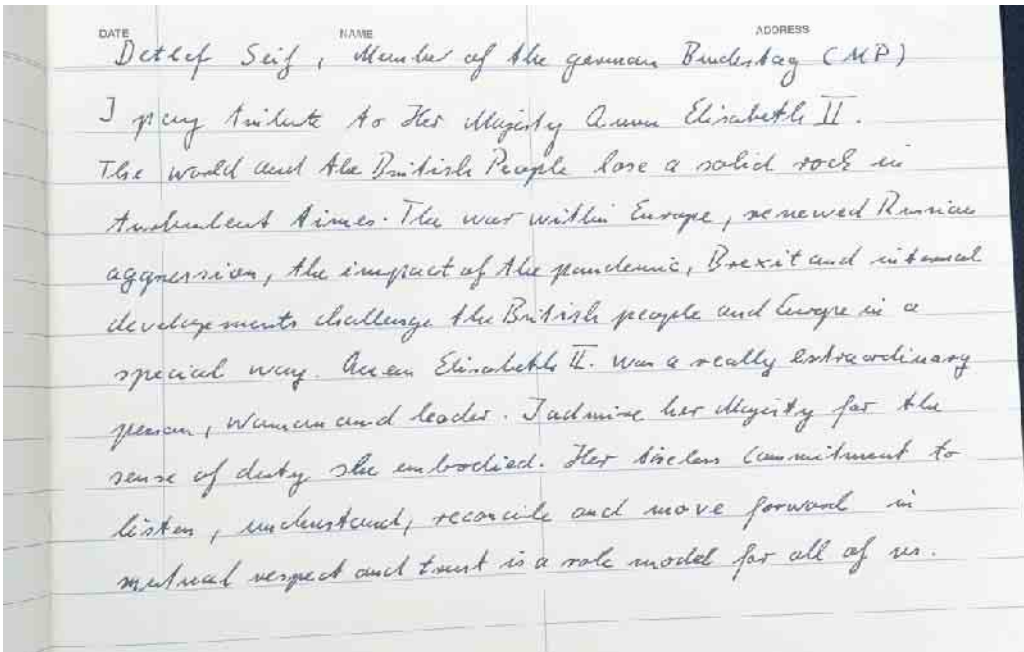 DATE NAME ADDRESS
Detlef Seif, Member of the german Bundestag (MP)
I pay tribute to Her Majesty Queen Elisabeth II.
The world and the British People lose a solid rock in
turbulent times. The war within Europe, renewed Russian
aggression, the impact of the pandemic, Brexit and internal
developements challenge the British people and Europe in a
special way. Queen Elisabeth II. was a really extraordinary
person, woman and leader. I admire her Majesty for the
sense of duty she embodied. Her tireless commitment to
listen, understand, reconcile and move forward in
mutual respect and trust is a role model for all of us.